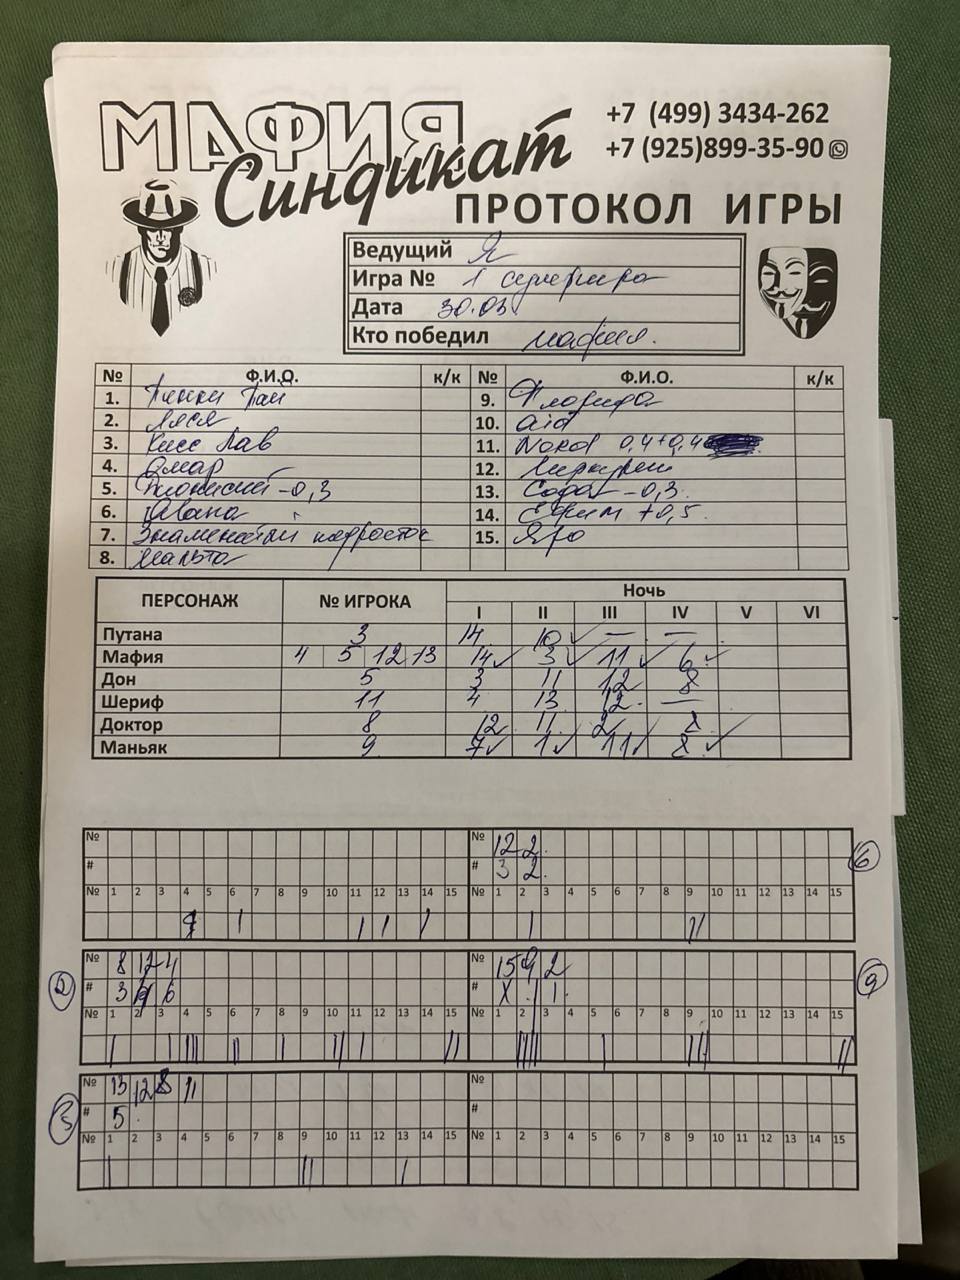 МАФИЯ
Синдикат
+7 (499) 3434-262
+7 (925)899-35-90
ПРОТОКОЛ ИГРЫ
Ведущий Я
Игра № 1
Дата 30.03.
Кто победил мафия.
№ Ф.И.О. к/к № Ф.И.О. к/к
1. Пинки Пай 9. Флорида
2. Ляся 10. aid
3. Кисс Лав 11. Nord 0,4+0,4
4. Омар 12.
5. Дионисий -0,3 13. Софа -0,3.
6. Ивана 14. Ефим +0,5.
7. Знаменатый подросток 15. Яро
8. Мальта
ПЕРСОНАЖ № ИГРОКА Ночь
I II III IV V VI
Путана 3 14 10 ✓ — —
Мафия 4 5 12 13 14 ✓ 3 ✓ 11 ✓ 6 ✓
Дон 5 3 11 12 8
Шериф 11 4 13 12. —
Доктор 8 12 11 2 8
Маньяк 9 7 ✓ 1 ✓ 11 ✓ 8 ✓
№ № 12 2.
# # 3 2. 6
№ 1 2 3 4 5 6 7 8 9 10 11 12 13 14 15 № 1 2 3 4 5 6 7 8 9 10 11 12 13 14 15
№ 8 12 4 № 15 9 2
2 # 3 6 # X 1 1. 9
№ 1 2 3 4 5 6 7 8 9 10 11 12 13 14 15 № 1 2 3 4 5 6 7 8 9 10 11 12 13 14 15
№ 13 12 8 11 №
3 # 5 #
№ 1 2 3 4 5 6 7 8 9 10 11 12 13 14 15 № 1 2 3 4 5 6 7 8 9 10 11 12 13 14 15